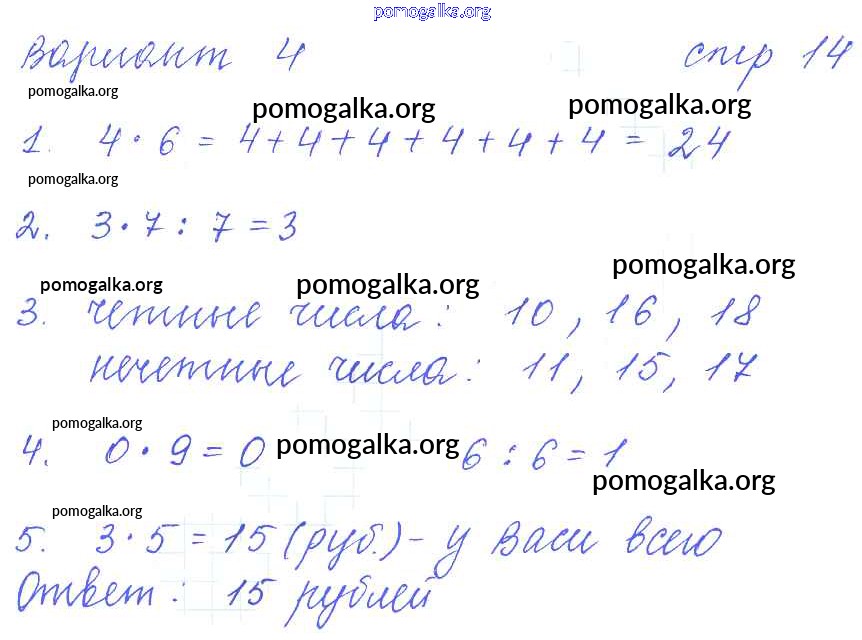 pomogalka.org
Вариант 4 стр 14
pomogalka.org pomogalka.org pomogalka.org
1. 4 · 6 = 4 + 4 + 4 + 4 + 4 + 4 = 24
pomogalka.org
2. 3 · 7 : 7 = 3
pomogalka.org pomogalka.org pomogalka.org
3. четные числа : 10 , 16 , 18
нечетные числа : 11, 15, 17
pomogalka.org
4. 0 · 9 = 0 pomogalka.org 6 : 6 = 1
pomogalka.org
pomogalka.org
5. 3 · 5 = 15 (руб.) - у Васи всего
Ответ : 15 рублей